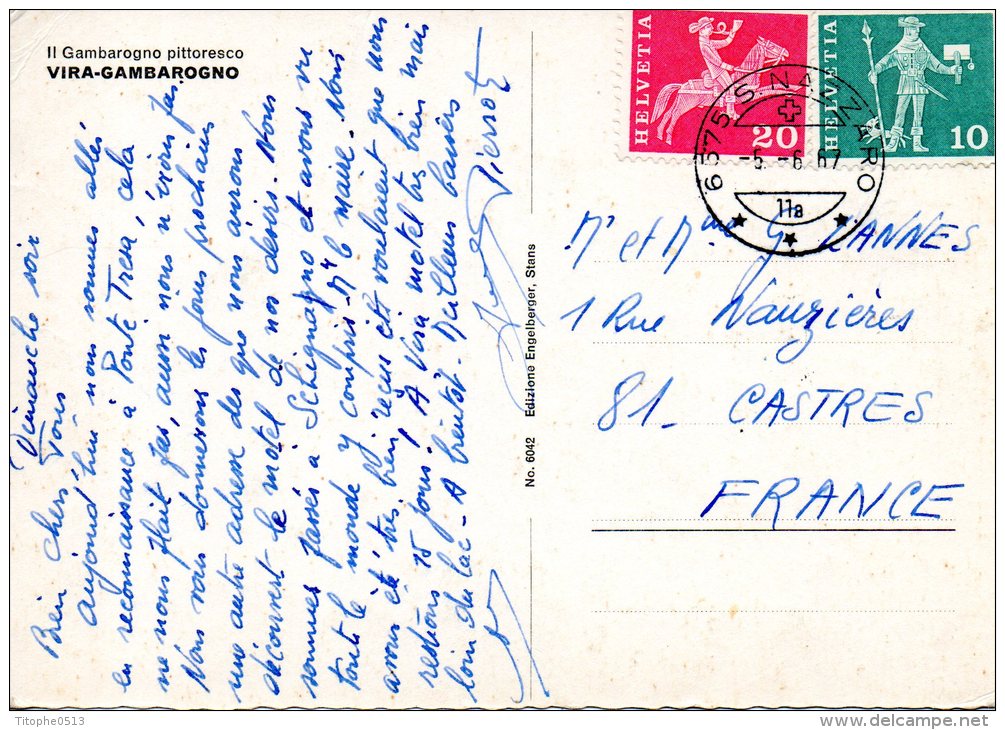 Il Gambarogno pittoresco
VIRA-GAMBAROGNO
Dimanche soir
Bien chers Tous
aujourd'hui nous sommes allés
en reconnaissance à Ponte Tresa, cela
ne nous plait pas, aussi nous n'irons pas.
Nous vous donnerons les jours prochains
une autre adresse dès que nous aurons
découvert le motel de nos désirs. Nous
sommes passés à Schignagno et avons vu
tout le monde y compris M le maire. Nous
avons été très bien reçus et voulaient que nous
restions 15 jours! A Vira motel très bien mais
loin du lac - A bientôt. Meilleurs baisers
Pierrot
No. 6042 Edizione Engelberger, Stans
HELVETIA
20
HELVETIA
10
6575 S. NAZZARO
-5.-6.67
11a
Mr et Mme G LANNES
1 Rue Nauzières
81_ CASTRES
FRANCE
Titophe0513
delcampe.net